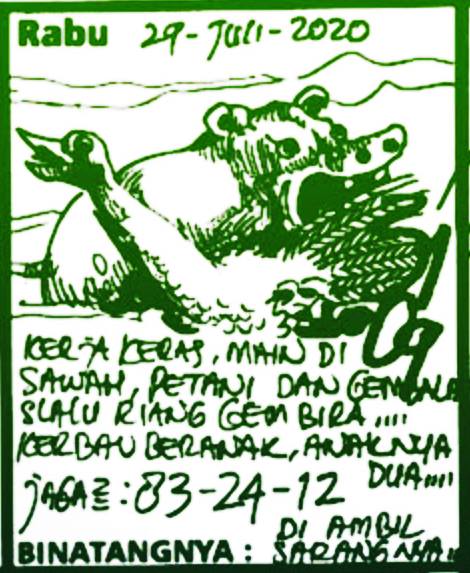 Rabu 29-JULI-2020
KERJA KERAS, MAIN DI
SAWAH, PETANI DAN GEMBALA
SLALU RIANG GEMBIRA....
KERBAU BERANAK, ANAKNYA
DUA....
JAGA2 : 83-24-12
DI AMBIL
BINATANGNYA : SARANGNYA..